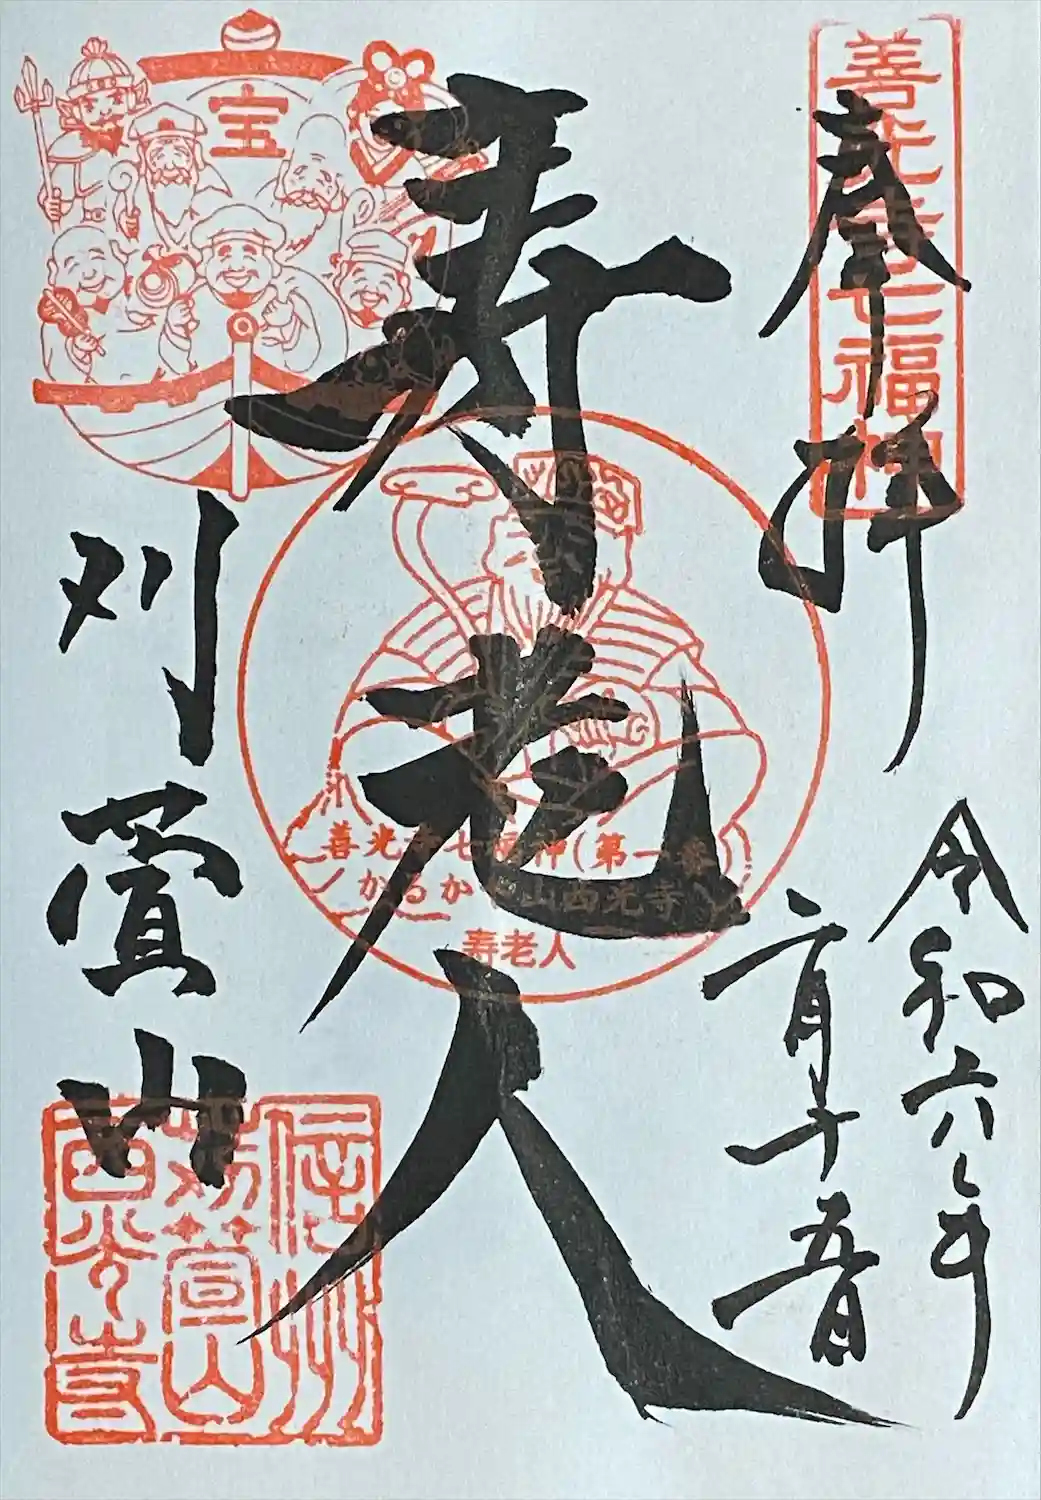 善光寺七福神
奉拝
令和六年
二月十五日
宝
寿老人
善光寺七福神(第一番)
かるかや山西光寺
寿老人
刈萱山
信州
苅萱山
西光寺